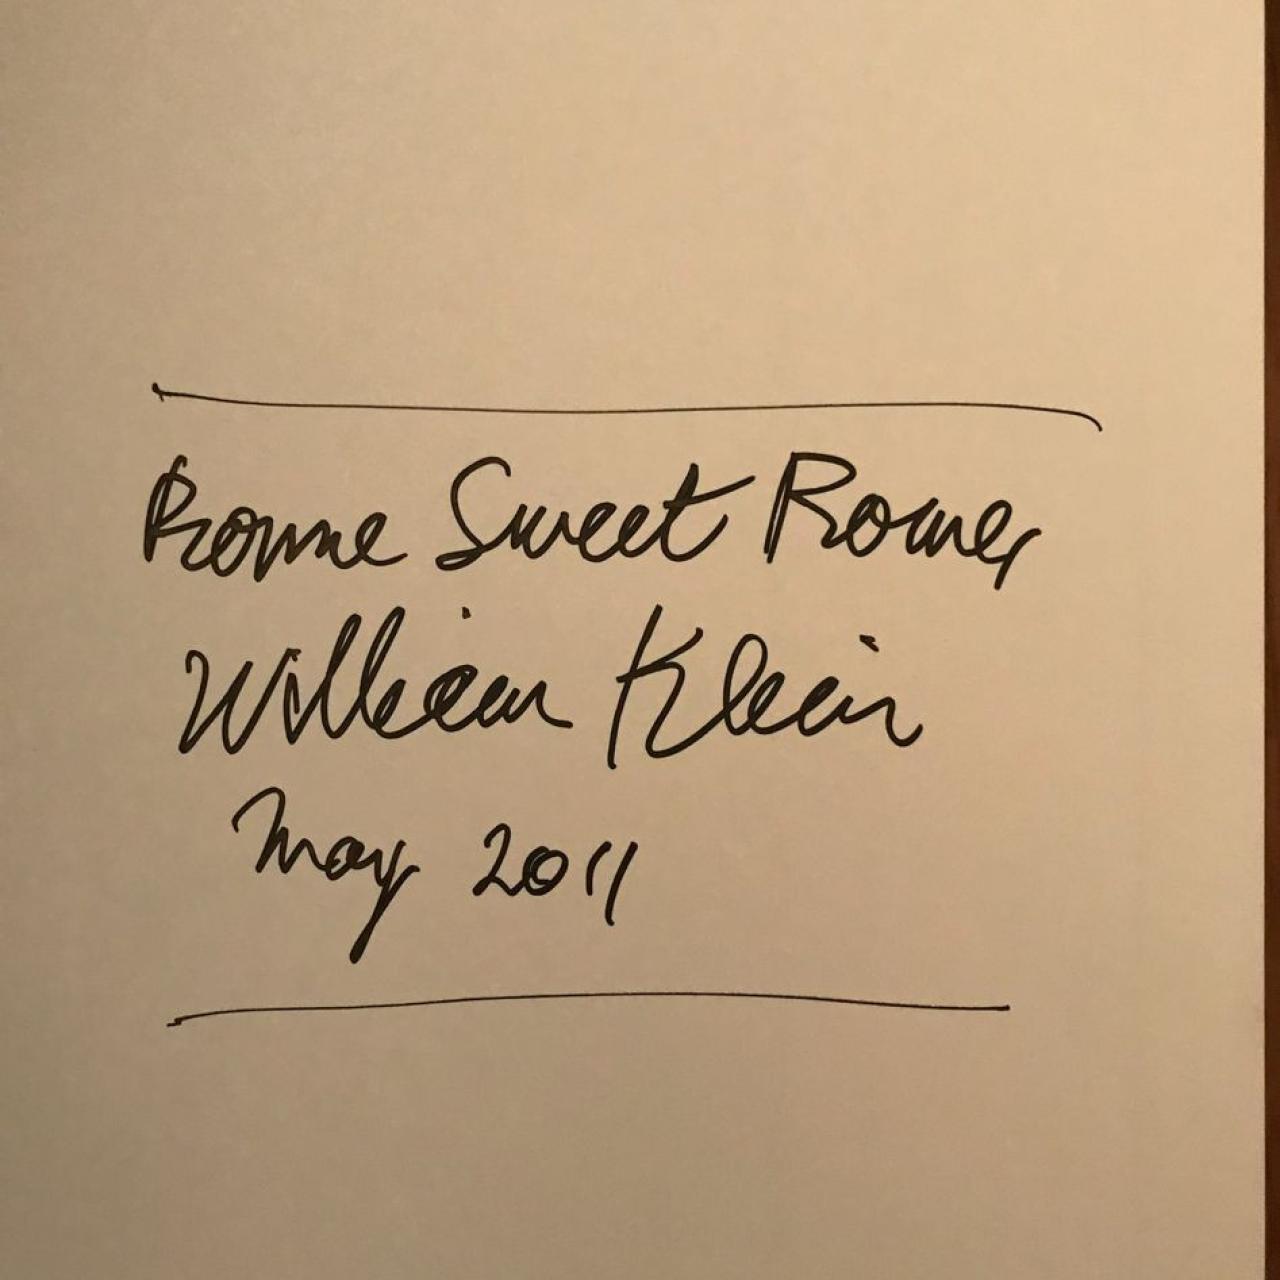 Rome Sweet Rome,
William Klein
May 2011